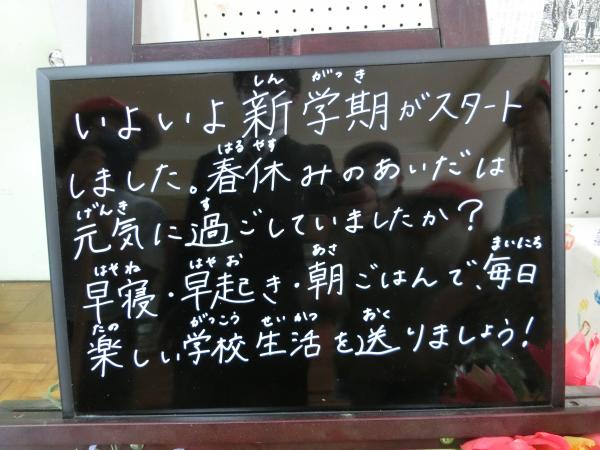 いよいよ新学期がスタート
しました。春休みのあいだは
元気に過ごしていましたか?
早寝・早起き・朝ごはんで、毎日
楽しい学校生活を送りましょう!